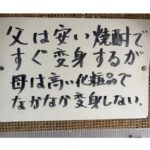 父は安い焼酎で
すぐ変身するが
母は高い化粧品で
なかなか変身しない。